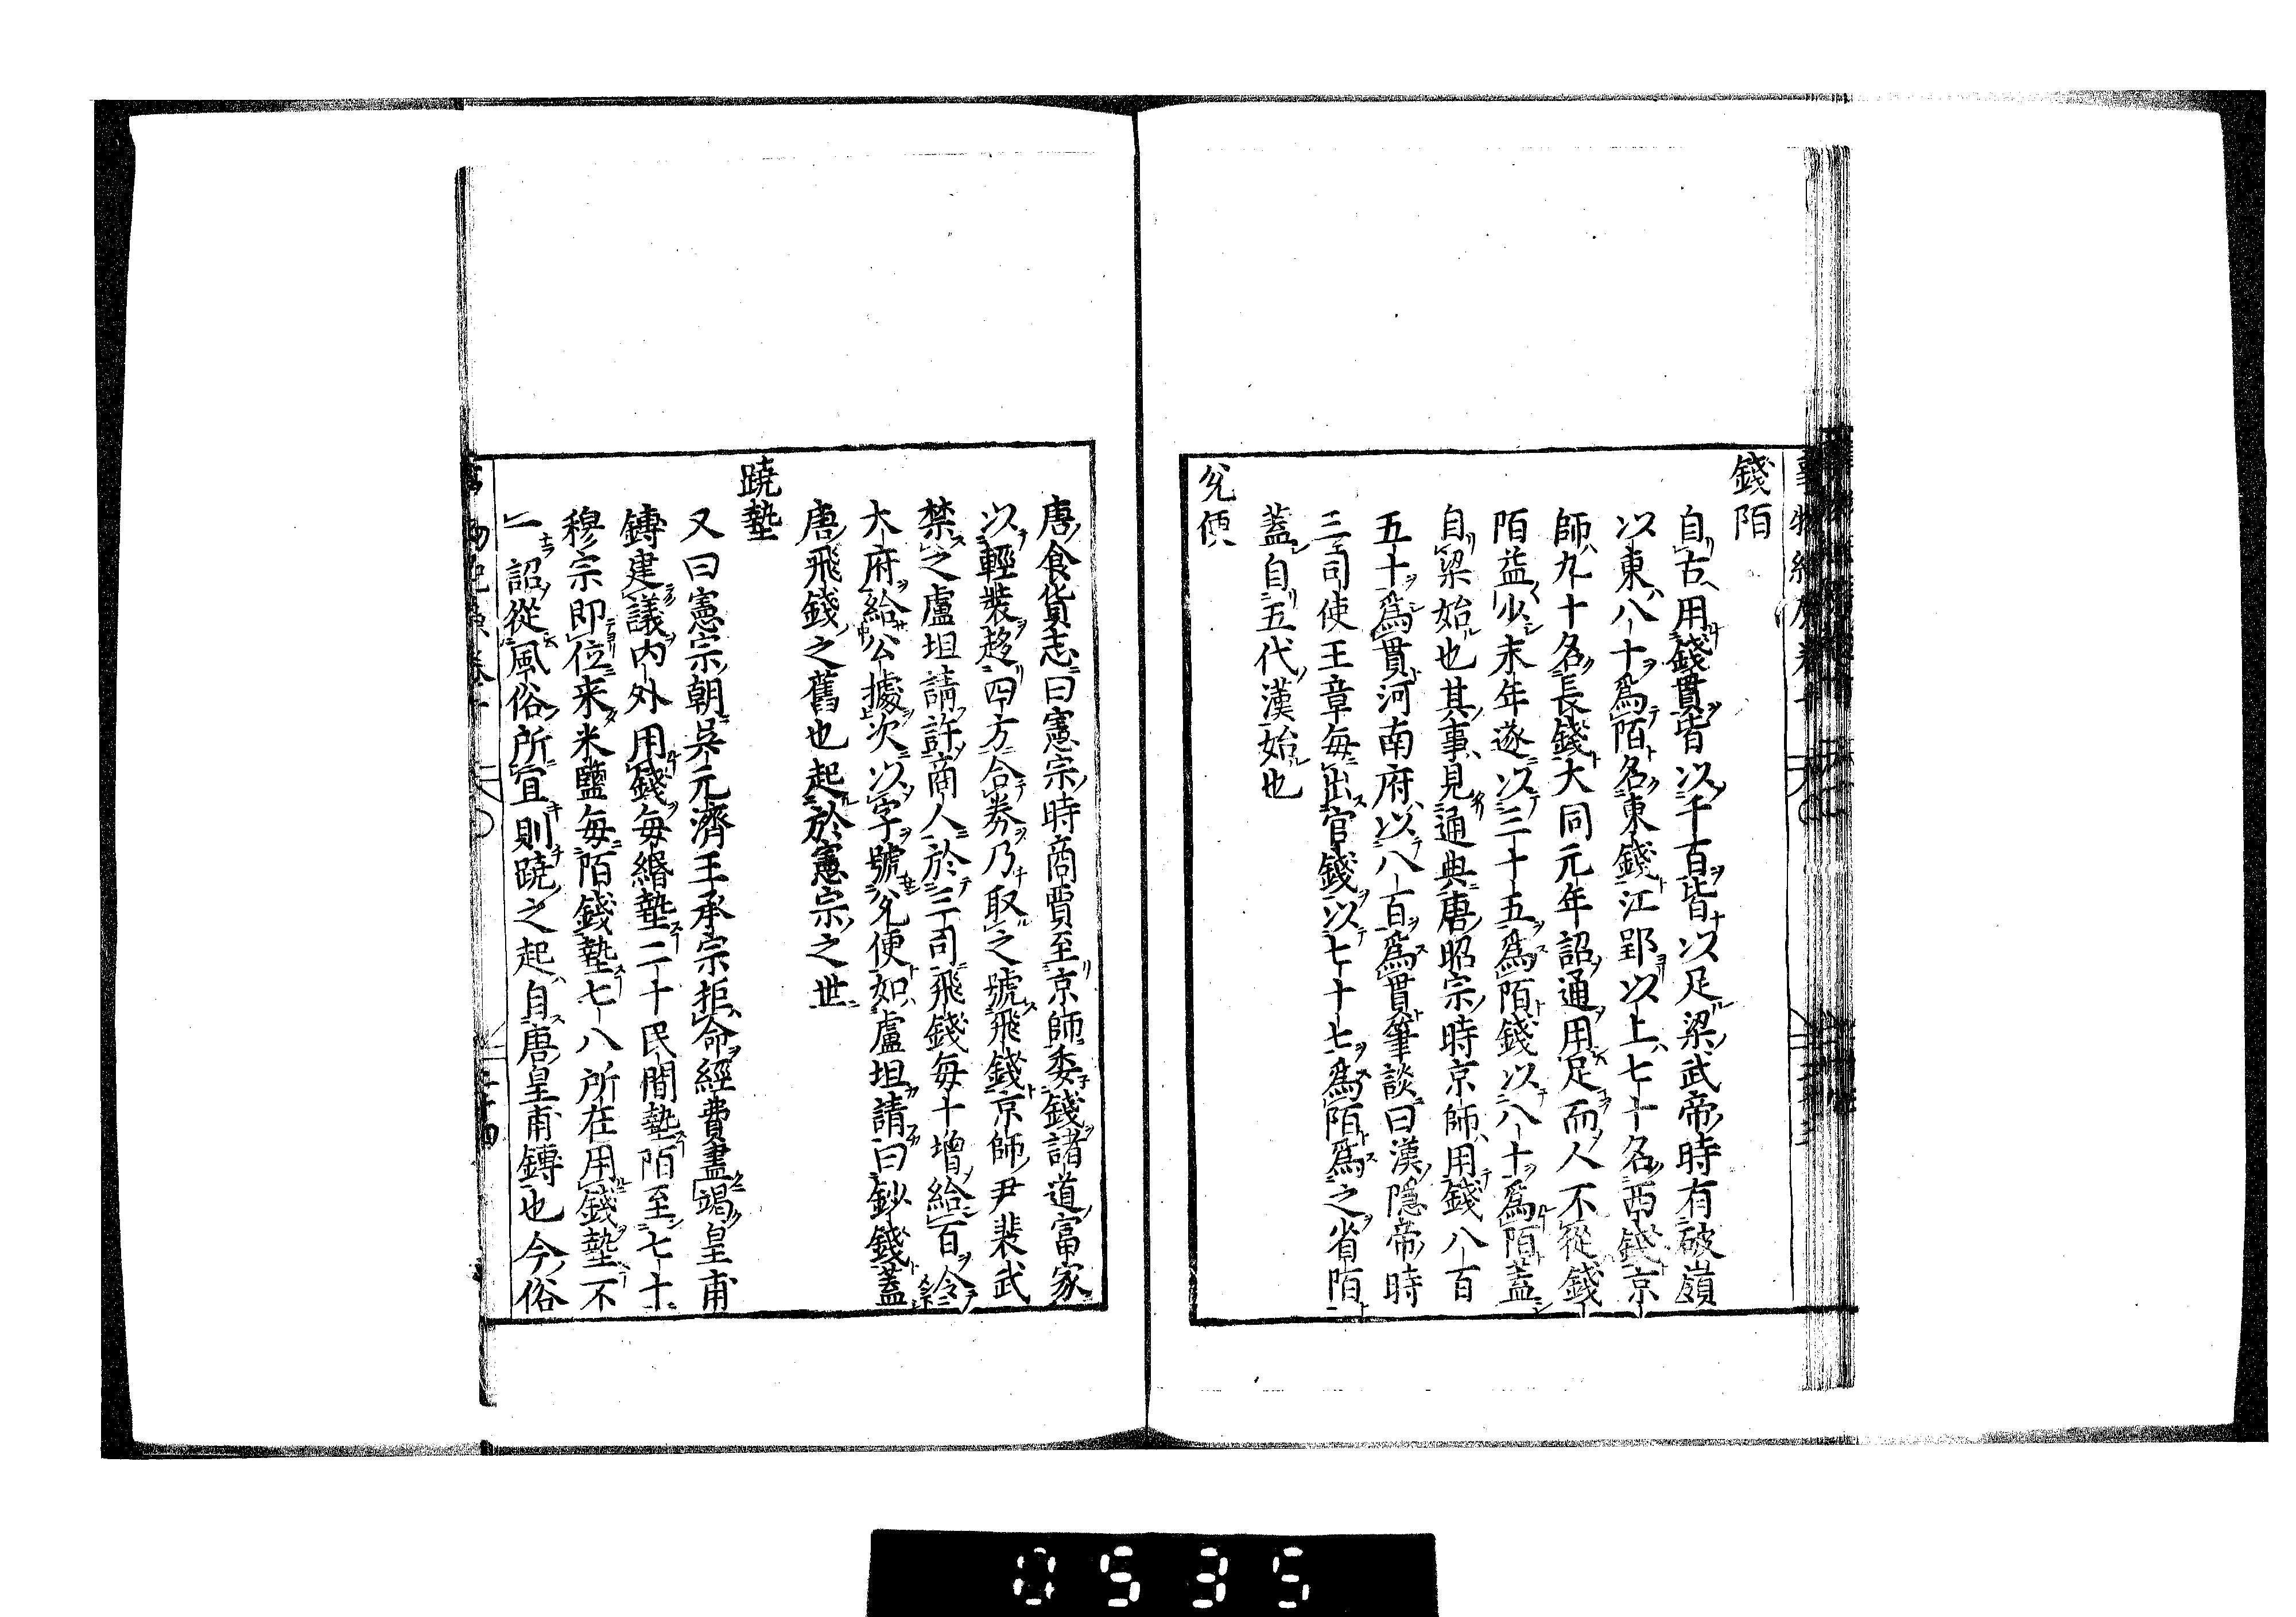 錢陌
自古用錢貫皆以千百皆以足梁武帝時有破嶺
以東八十爲陌名東錢江郢以上七十名西錢京
師九十名長錢大同元年詔通用足而人不從錢
陌益少末年遂以三十五爲陌錢以八十爲陌蓋
自梁始也其事見通典唐昭宗時京師用錢八百
五十爲貫河南府以八百爲貫筆談曰漢隱帝時
三司使王章每出官錢以七十七爲陌爲之省陌
蓋自五代漢始也
兊便
唐食貨志曰憲宗時商賈至京師委錢諸道富家
以輕裝趍四方合券乃取之號飛錢京師尹裴武
禁之盧坦請許商人於三司飛錢每十增給百
大府給公據次以字號兊便如盧坦請曰鈔錢蓋
唐飛錢之舊也起於憲宗之世
蹺墊
又曰憲宗朝吳元濟王承宗拒命經費盡竭皇甫
鏄建議內外用錢每緡墊二十民間墊陌至七十
穆宗即位来米鹽每陌錢墊七八所在用錢墊不
一詔從風俗所宜則蹺之起自唐皇甫鏄也今俗
0535